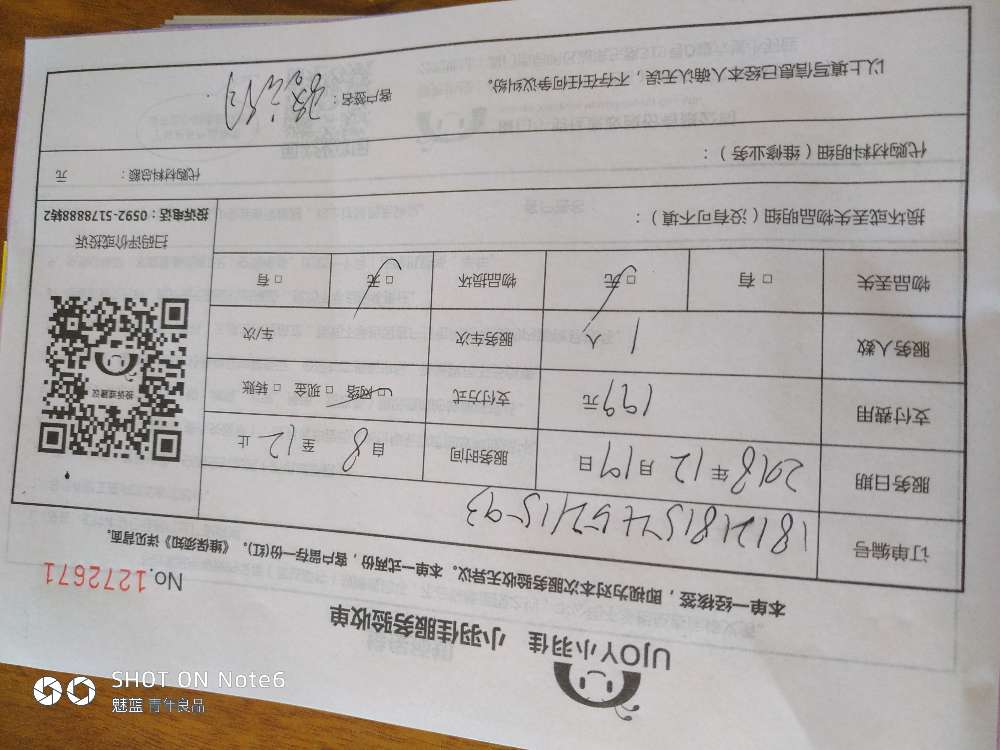 UJOY小羽佳 小羽佳服务验收单
No.1272671
本单一经核签，即视为对本次服务验收无异议。本单一式两份，客户留存一份(红)。《维保须知》详见背面。
订单编号
服务日期 2018年12月19日 服务时间 自8至12止
支付费用 199元 支付方式 □网络 □现金 □转账
服务人数 1人 服务车次 车/次
物品丢失 □有 □无 物品损坏 □无 □有
投诉或建议
扫码评价或投诉
投诉电话：0592-5178888转2
损坏或丢失物品明细（没有可不填）：
代购材料明细（维修业务）： 代购材料总额： 元
以上填写信息已经本人确认无误，不存在任何争议纠纷。 客户签名：
SHOT ON Note6
魅蓝 青年良品